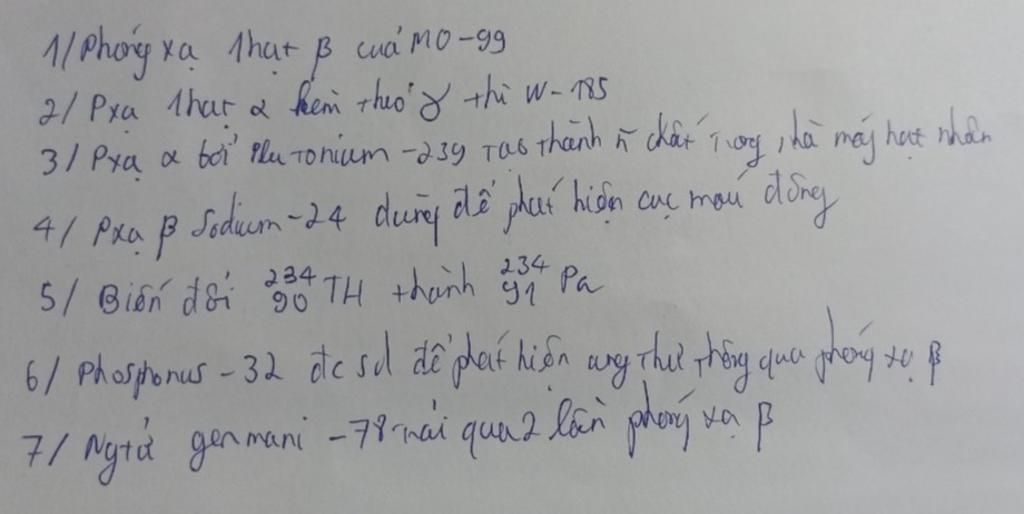 1/ Phóng xạ 1 hạt β của MO-99
2/ Pxạ 1 hạt α kèm theo γ thì W-185
3/ Pxạ α bởi Plutonium -239 tạo thành n chất trong nhà máy hạt nhân
4/ Pxạ β Sodium-24 dùng để phát hiện cục máu đông
5/ Biến đổi ²³⁴₉₀TH thành ²³⁴₉₁Pa
6/ Phosphorus -32 đc sd để phát hiện ung thư thông qua phóng xạ β
7/ Ngtử germani -78 trải qua 2 lần phóng xạ β